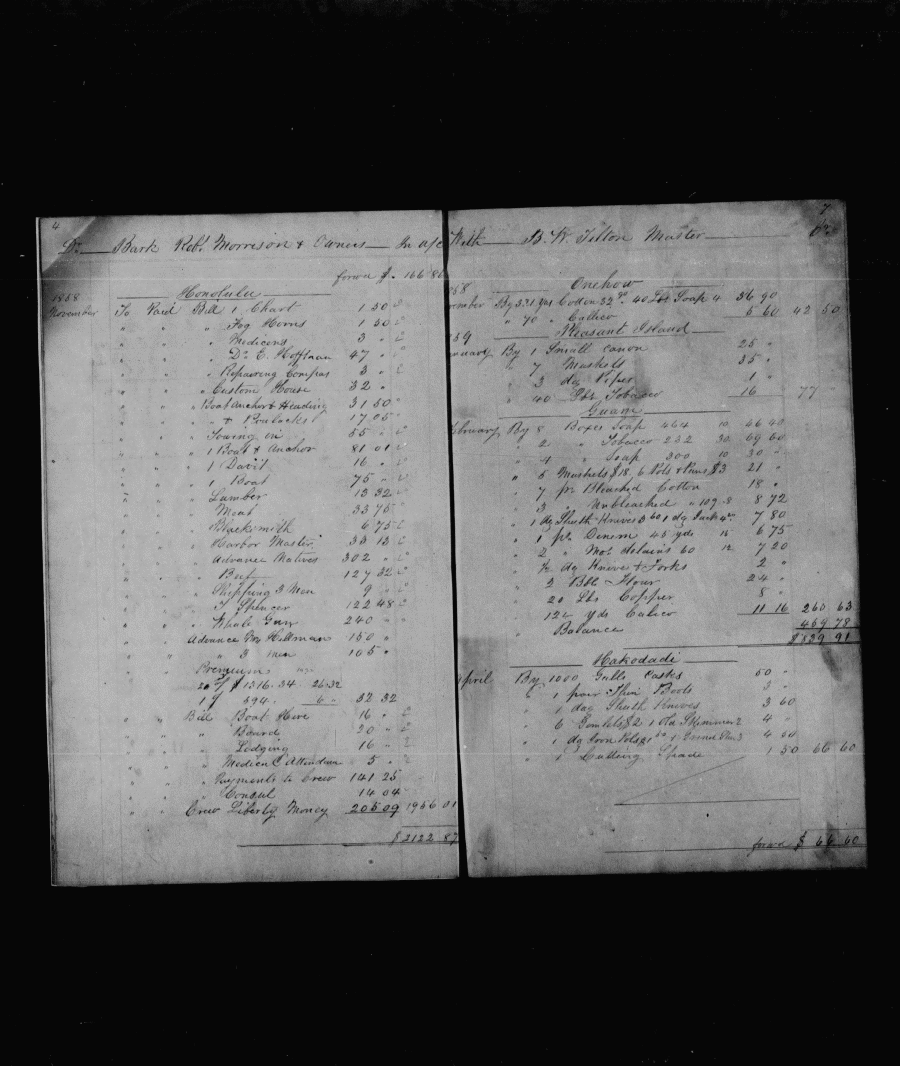 4
Dr. Bark Robt. Morrison & Owners In a/c
forwd $ 166 86
1858
Honolulu
November To Paid Bill 1 Chart 1 50
" " " Fog Horns 1 50
" " " Medicens 3 "
" " " Dr. E. Hoffman 47 "
" " " Repairing Compas 3 "
" " " Custom House 32 "
" " Boat Anchor & Heading 31 50
" " " & 17 05
" " " Towing in 55 "
" " " 1 Boat & Anchor 81 01
" " " 1 Davit 16 "
" " " 1 Boat 75 "
" " " Lumber 13 32
" " " Meat 33 75
" " " Blacksmith 6 75
" " " Harbor Master 33 13
" " " Advance Natives 302 "
" " " Beef 127 32
" " " Shipping 3 Men 9 "
" " " Spencer 122 48
" " " Whale Gun 240 "
" " Advance Hillman 150 "
" " " " 3 men 105 "
Premium
20 $1316.34 26.32
1 594. 6 " 32 32
" " Bill Boat Hire 16 "
" " " Board 30 "
" " " Lodging 16 "
" " " Medical Attendance 5 "
" " " Payments to Crew 141 25
" " " Consul 14 04
" " Crew Liberty Money 205 09 1956 01
$ 2122 87
7
With B. W. Tilton Master Cr.
58
Onehow
vember By 331 yds Cotton 32 40 Lbs Soap 4 36 90
" 70 " Callico 5 60 42 50
59
Pleasant Island
anuary By 1 Small canon 25 "
" 7 Muskets 35 "
" 3 dg Pipes 1 "
" 40 Lbs Tobacco 16 77 "
Guam
ebruary By 8 Boxes Soap 464 10 46 40
" 2 " Tobacco 232 30 69 60
" 4 " Soap 300 10 30 "
" 6 Muskets $18, 6 Pots & Pans $3 21 "
" 7 ps Bleached Cotton 18 "
" 3 " Unbleached " 109 8 8 72
" 1 dg Sheth Knives 3 60 1 dg 7 80
" 1 ps Denim 45 yds 15 6 75
" 2 " Mos delains 60 12 7 20
" ½ dg Knives & Forks 2 "
" 2 Bbl Flour 24 "
" 20 Lbs Copper 8 "
" 124 yds Calico 11 16 260 63
" Balance 459 78
$839 91
Hakodadi
April By 1000 Galls Casks 50 "
" 1 pair Boots 3 "
" 1 dag Sheth Knives 3 60
" 6 Gimlets $2 1 Old Skimmer 2 4 "
" 1 dg 4 50
" 1 Cutting Spade 1 50 66 60
forwd $ 66 60